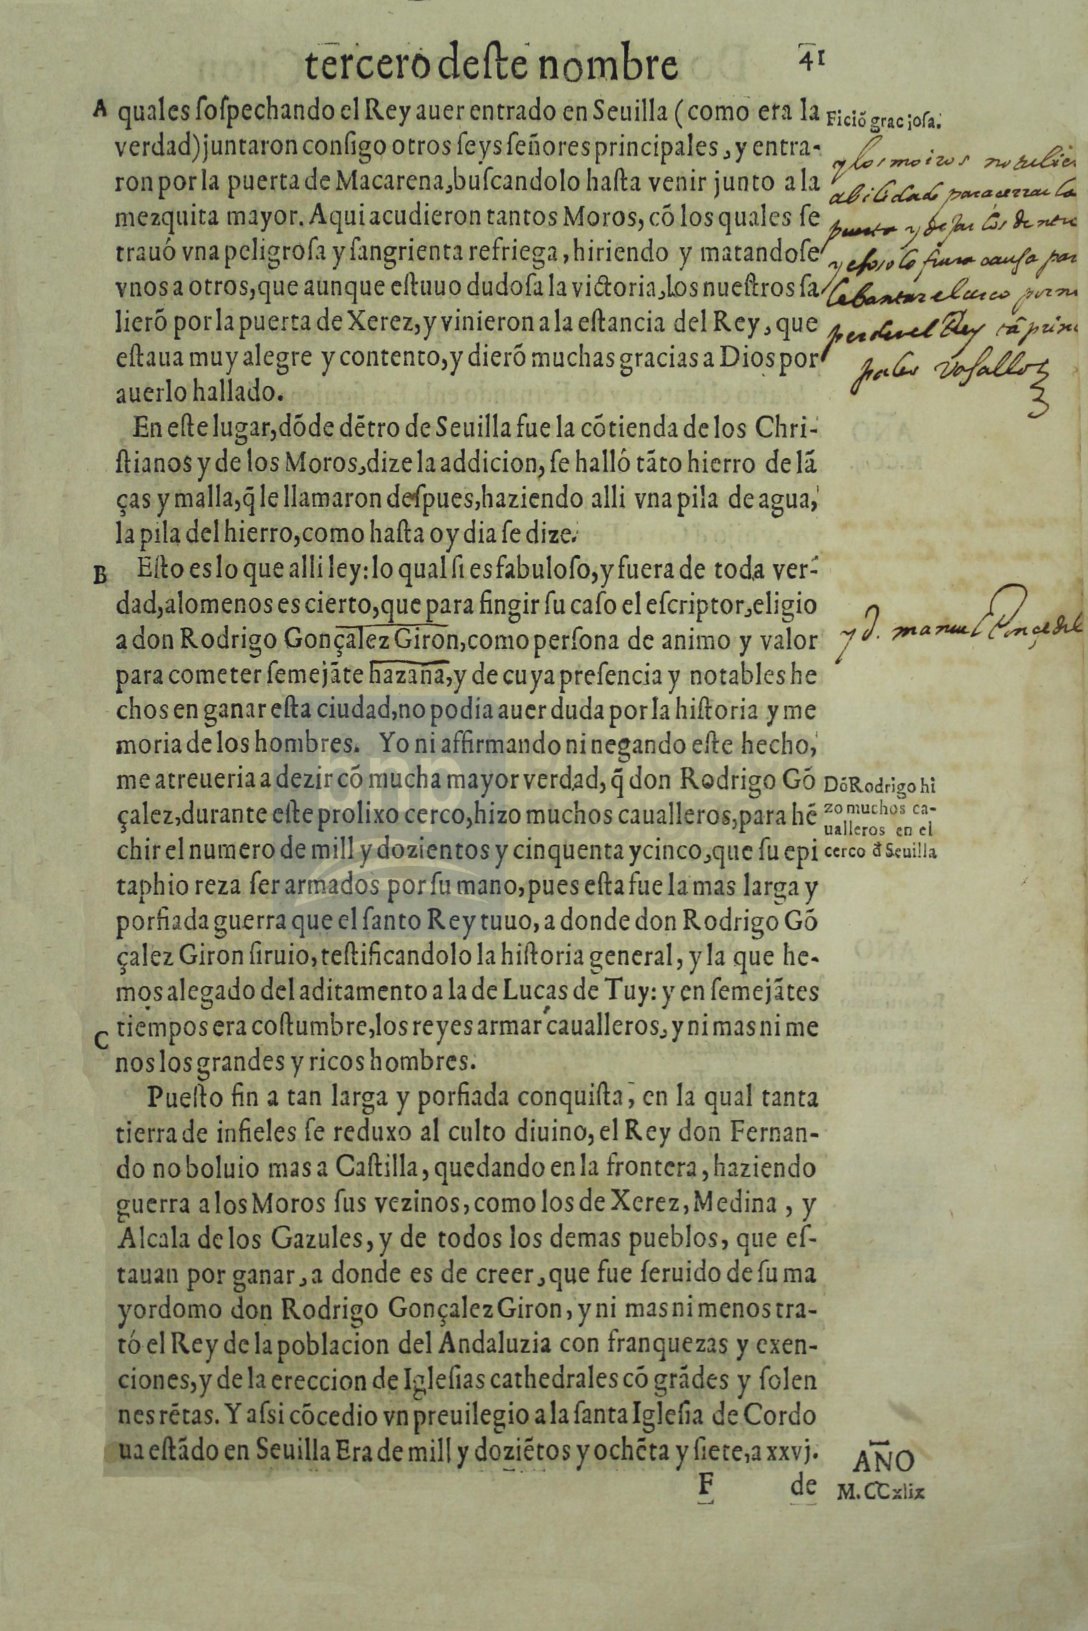 tercero deste nombre 41
A quales sospechando el Rey auer entrado en Seuilla (como era la
verdad) juntaron consigo otros seys señores principales, y entra-
ron por la puerta de Macarena, buscandolo hasta venir junto a la
mezquita mayor. Aqui acudieron tantos Moros, cõ los quales se
trauó vna peligrosa y sangrienta refriega, hiriendo y matandose
vnos a otros, que aunque estuuo dudosa la victoria, los nuestros sa
lierõ por la puerta de Xerez, y vinieron a la estancia del Rey, que
estaua muy alegre y contento, y dierõ muchas gracias a Dios por
auerlo hallado.
En este lugar, dõde dẽtro de Seuilla fue la cõtienda de los Chri-
stianos y de los Moros, dize la addicion, se halló tãto hierro de lã
ças y malla, q̃ le llamaron despues, haziendo alli vna pila de agua,
la pila del hierro, como hasta oy dia se dize.
B Esto es lo que alli ley: lo qual si es fabuloso, y fuera de toda ver-
dad, alomenos es cierto, que para fingir su caso el escriptor, eligio
a don Rodrigo Gonçalez Giron, como persona de animo y valor
para cometer semejãte hazaña, y de cuya presencia y notables he
chos en ganar esta ciudad, no podia auer duda por la historia y me
moria de los hombres. Yo ni affirmando ni negando este hecho,
me atreueria a dezir cõ mucha mayor verdad, q̃ don Rodrigo Gõ
çalez, durante este prolixo cerco, hizo muchos caualleros, para hẽ
chir el numero de mill y dozientos y cinquenta y cinco, que su epi
taphio reza ser armados por su mano, pues esta fue la mas larga y
porfiada guerra que el santo Rey tuuo, a donde don Rodrigo Gõ
çalez Giron siruio, testificandolo la historia general, y la que he-
mos alegado del aditamento a la de Lucas de Tuy: y en semejãtes
C tiempos era costumbre, los reyes armar caualleros, y ni mas ni me
nos los grandes y ricos hombres.
Puesto fin a tan larga y porfiada conquista, en la qual tanta
tierra de infieles se reduxo al culto diuino, el Rey don Fernan-
do no boluio mas a Castilla, quedando en la frontera, haziendo
guerra a los Moros sus vezinos, como los de Xerez, Medina, y
Alcala de los Gazules, y de todos los demas pueblos, que es-
tauan por ganar, a donde es de creer, que fue seruido de su ma
yordomo don Rodrigo Gonçalez Giron, y ni mas ni menos tra-
tó el Rey de la poblacion del Andaluzia con franquezas y exen-
ciones, y de la ereccion de Iglesias cathedrales cõ grãdes y solen
nes rẽtas. Y assi cõcedio vn preuilegio a la santa Iglesia de Cordo
ua estãdo en Seuilla Era de mill y doziẽtos y ochẽta y siete, a xxvj.
F de
Ficiõ graciosa.
y los moros no
abilidad para cerrar la
puerta y
y causa par
lebantar el cerco por no
perder el Rey tã prin
pales vasallos
y d. manuel Ponçe del
Dõ Rodrigo hi
zo muchos ca-
ualleros en el
cerco đ Seuilla
AÑO
M.CCxlix